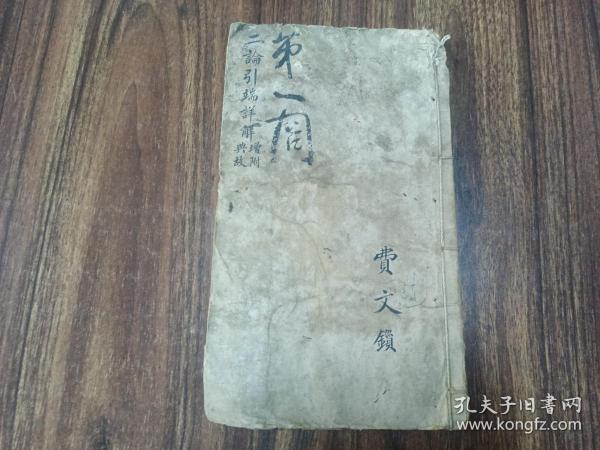 第一閣
二論引端詳解
增附
典故
費文鎖
孔夫子旧书网
www.kongfz.com